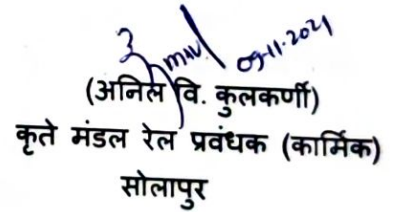 09-11-2021
(अनिल वि. कुलकर्णी)
कृते मंडल रेल प्रवंधक (कार्मिक)
सोलापुर